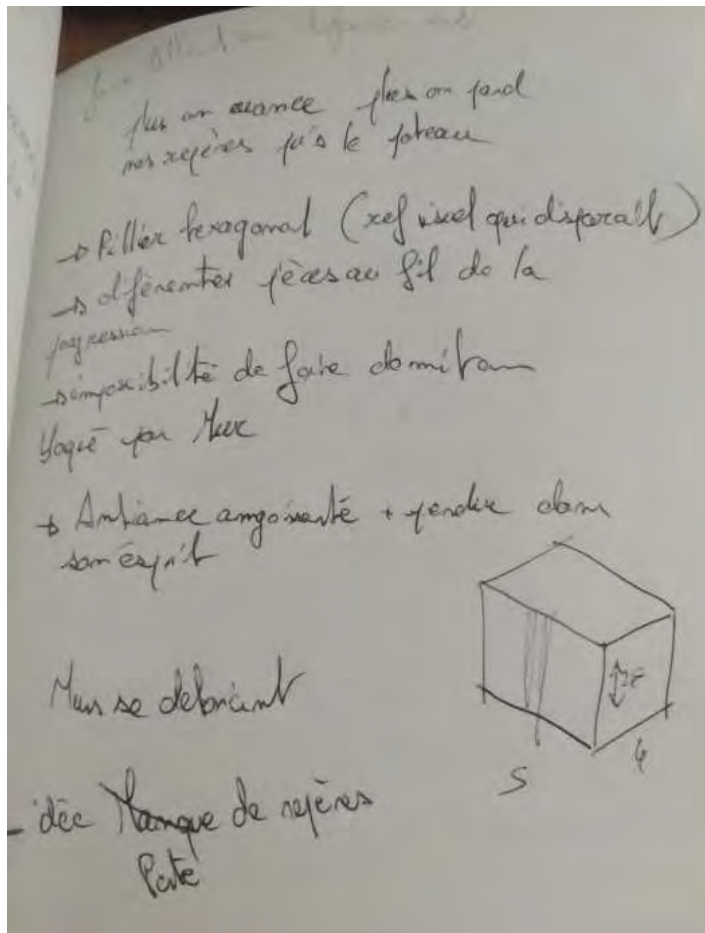 plus on avance plus on perd
nos repères plus le poteau
→ Pillier hexagonal (ref visel qui disparait)
→ différentes pièces au fil de la
progression
→ impossibilité de faire demi tour
bloqué par Mur
→ Ambiance angoissante + perdu dans
son esprit
Murs se
5
4
- idée Manque de repères
Perte